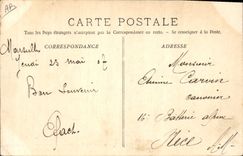 CARTE POSTALE
Tous les Pays étrangers n'acceptent pas la Correspondance au recto. — Se renseigner à la Poste.
CORRESPONDANCE
ADRESSE
Marseille
23 mai 07
Bon Souvenir
Monsieur
Etienne
canonier
16e Batterie alpine
Nice
A.M.